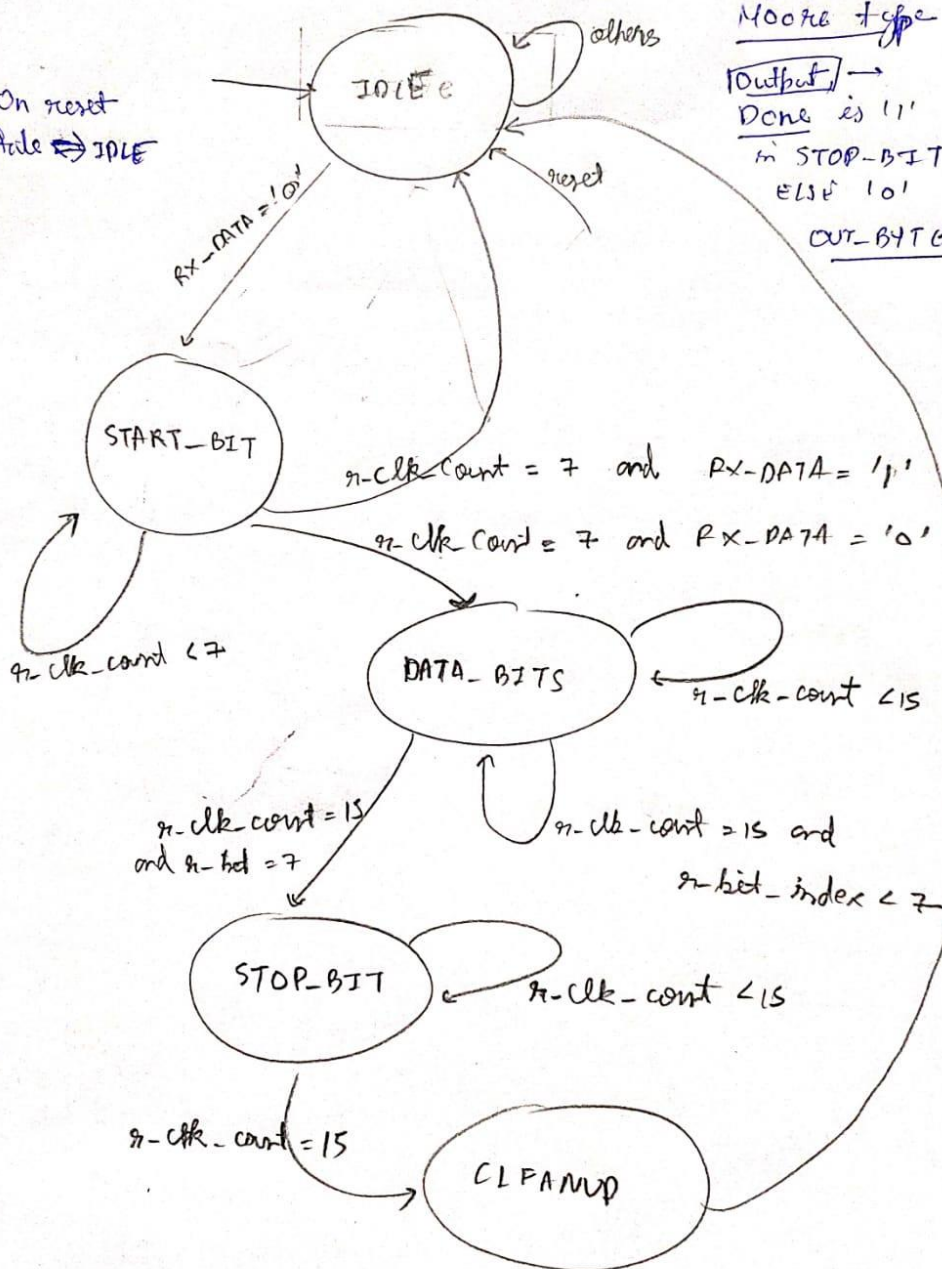 Moore type
others
IDLE
On reset
IDLE
Output →
Done is '1'
in STOP-BIT
ELSE '0'
OUT_BYTE
reset
RX-DATA = '0'
START_BIT
r-clk-count = 7 and RX-DATA = '1'
r-clk-count = 7 and RX-DATA = '0'
r-clk-count < 7
DATA_BITS
r-clk-count < 15
r-clk-count = 15
and r-bit = 7
r-clk-count = 15 and
r-bit_index < 7
STOP_BIT
r-clk-count < 15
r-clk-count = 15
CLEANUP